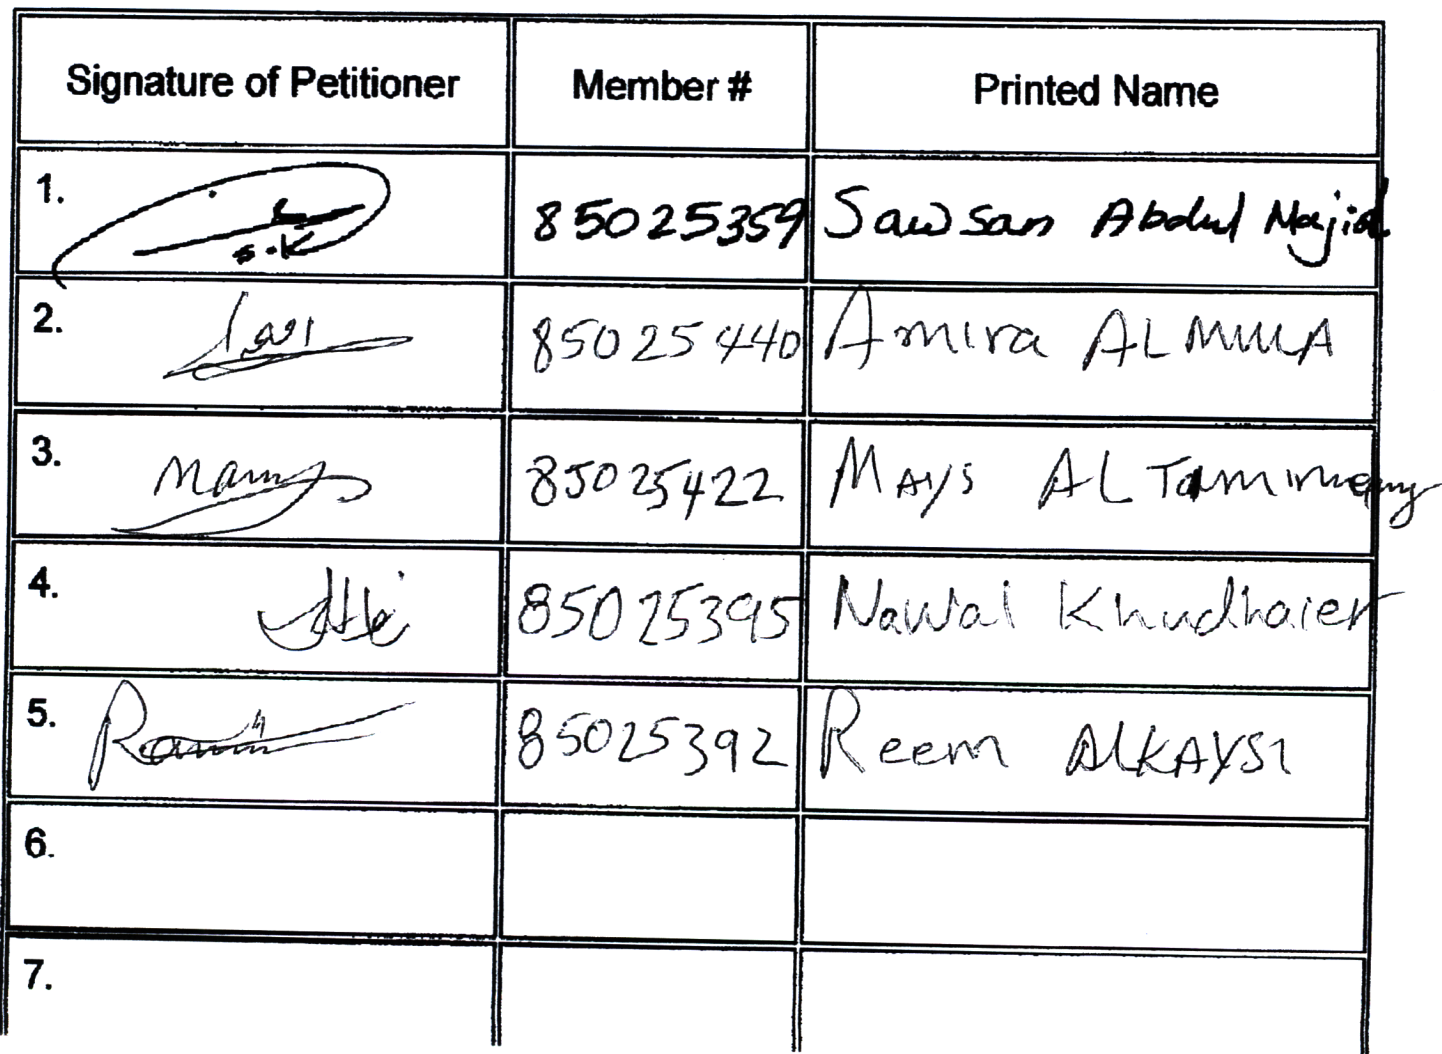 Signature of Petitioner Member # Printed Name
1. S.K 85025359 Sawsan Abdul Majid
2. 85025440 Amira ALMULA
3. 85025422 MAYS AL Tamimemy
4. 85025395 Nawal Khudhaier
5. 85025392 Reem ALKAYSI
6.
7.